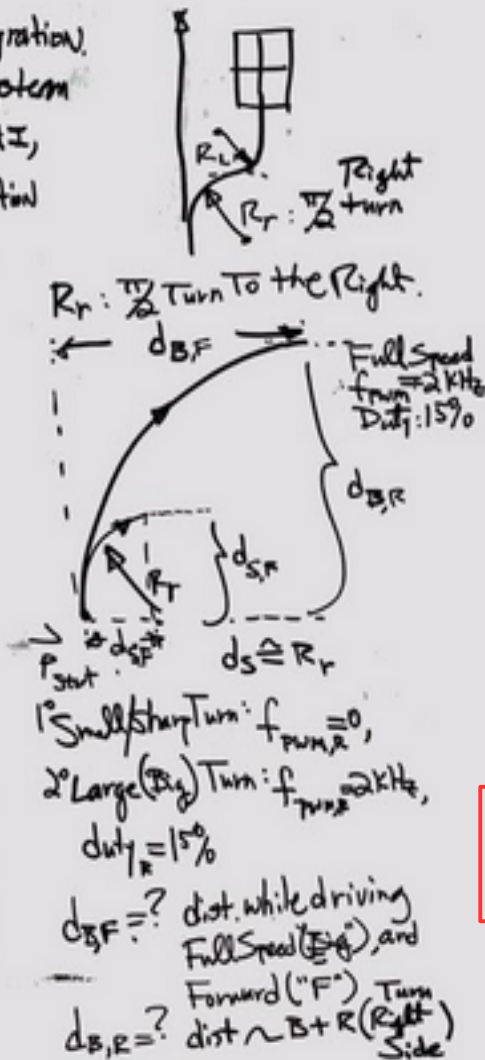 gration.
stem
I,
tion
R_L
Right
R_r : π/2 turn
R_r : π/2 Turn To the Right.
d_B,F
Full Speed
f_pwm = 2 kHz
Duty: 15%
d_B,R
d_S,R
R_T
d_S,F
P_start
d_S ≙ R_r
1° Small/sharp Turn: f_PWM,R = 0,
2° Large(Big) Turn: f_PWM,R = 2 kHz,
duty_R = 15%
d_B,F = ? dist. while driving
Full Speed("Big"), and
Forward ("F") Turn
d_B,R = ? dist ~ B + R (Right
Side